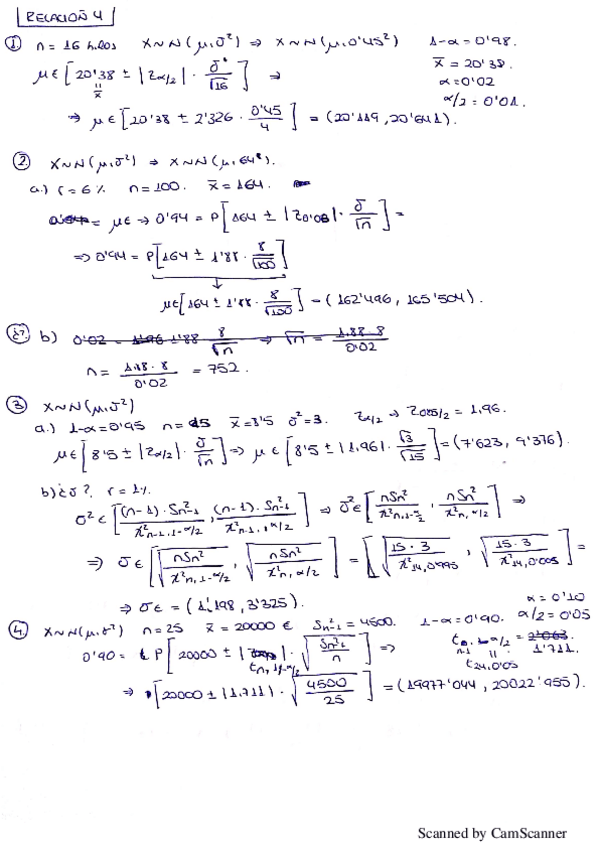 RELACIÓN 4
① n = 16 hilos X~N(μ,σ²) ⇒ X~N(μ,0'45²) 1-α = 0'98.
μ∈[20'38 ± |Zα/2| · σ/√16] ⇒ x̄ = 20'38.
x̄ α = 0'02
α/2 = 0'01.
⇒ μ∈[20'38 ± 2'326 · 0'45/4] = (20'119, 20'641).
② X~N(μ,σ²) ⇒ X~N(μ,64²).
a.) r = 6% n = 100. x̄ = 164.
= μ∈ ⇒ 0'94 = P[164 ± |Z0'03| · σ/√n] =
⇒ 0'94 = P[164 ± 1'88 · 8/√100]
μ∈[164 ± 1'88 · 8/√100] = (162'496, 165'504).
¿? b) 0'02 = 1'96 1'88 8/√n ⇒ √n = 1.88·8/0'02
n = 1.88·8/0'02 = 752.
③ X~N(μ,σ²)
a.) 1-α = 0'95 n = 15 x̄ = 3'5 σ² = 3. Zα/2 → Z0'025/2 = 1.96.
μ∈[8'5 ± |Zα/2| · σ/√n] ⇒ μ∈[8'5 ± |1.96| · √3/√15] = (7'623, 9'376).
b) ¿σ?. r = 1%.
σ²∈[(n-1)·Sn-1²/χ²n-1,1-α/2 , (n-1)·Sn-1²/χ²n-1,α/2] ⇒ σ²∈[nSn²/χ²n,1-α/2 , nSn²/χ²n,α/2] ⇒
⇒ σ∈[√(nSn²/χ²n,1-α/2) , √(nSn²/χ²n,α/2)] = [√(15·3/χ²14,0'995) , √(15·3/χ²14,0'005)] =
⇒ σ∈ = (1'198, 3'325). α = 0'10
④ X~N(μ,σ²) n = 25 x̄ = 20000 € Sn-1² = 4500. 1-α = 0'90. α/2 = 0'05
0'90 = P[20000 ± |tn,1-α/2| · √(Sn-1²/n)] ⇒ t n-1 α/2 = 2'063
t24,0'05 1'711.
⇒ [20000 ± |1.711| · √(4500/25)] = (19977'044, 20022'955).
Scanned by CamScanner